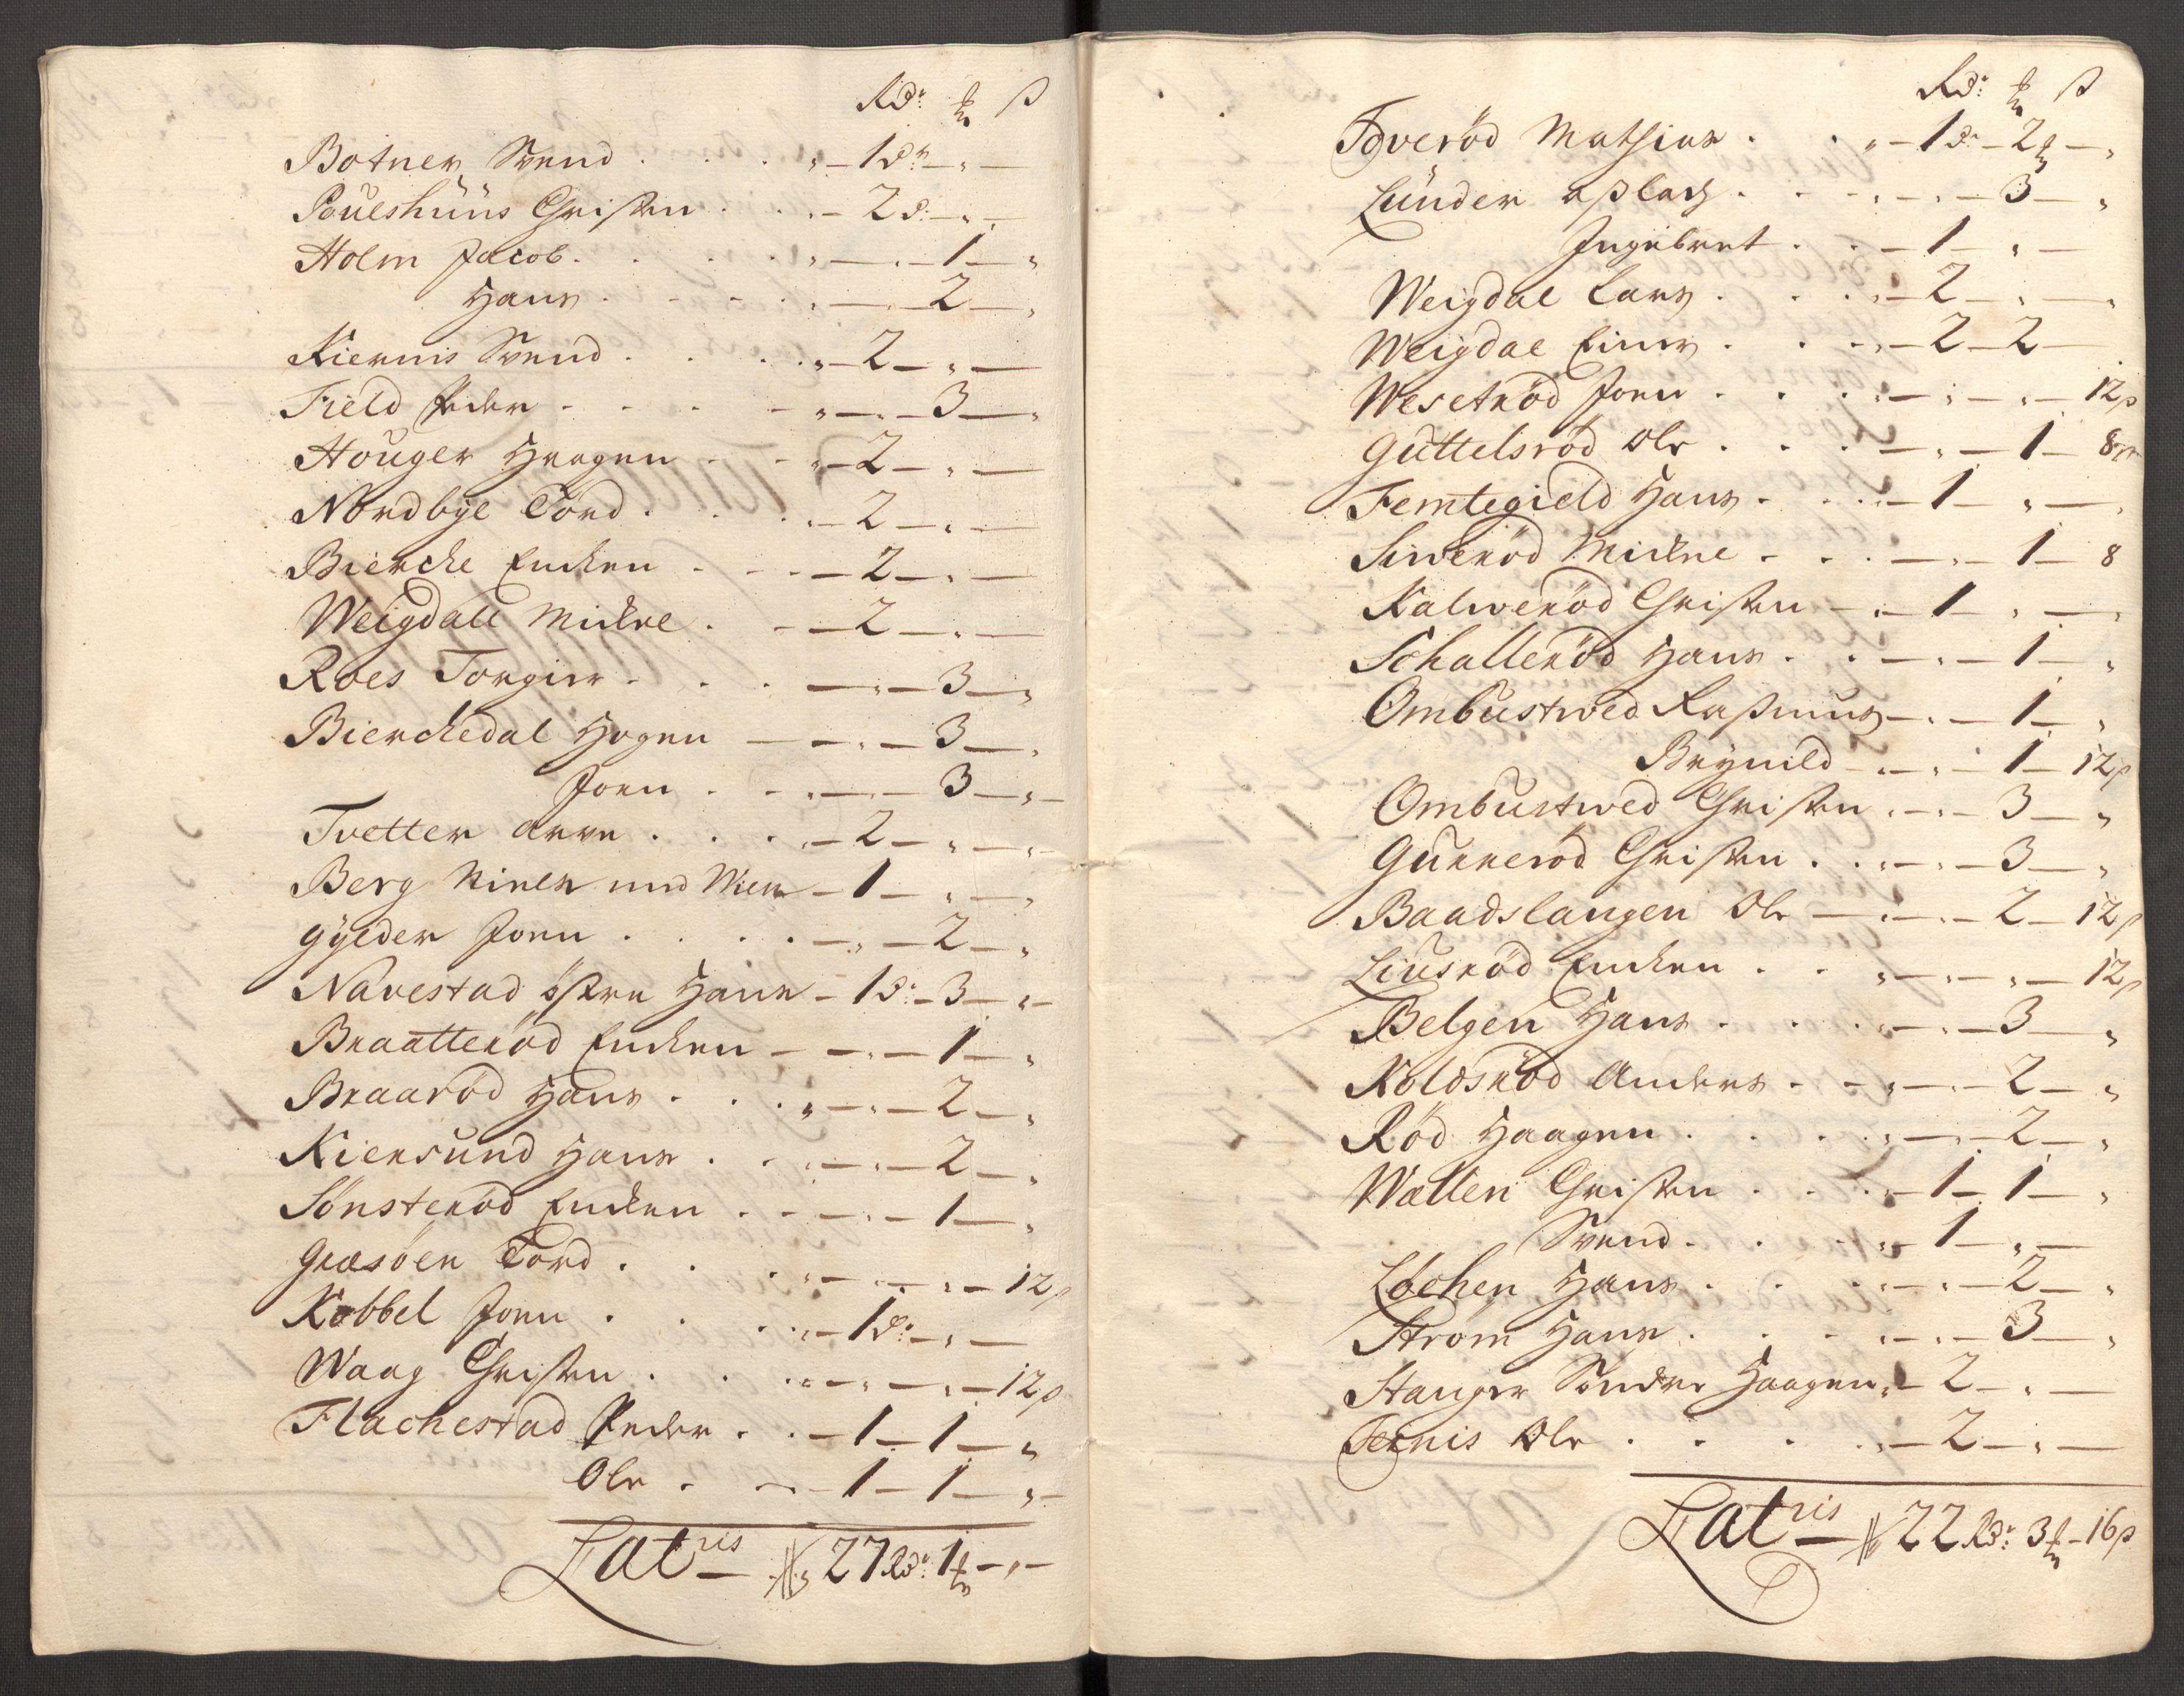 Rdr: ß
Botner Svend . . . „ — 1dr — „ —
Poüelshüüs Christen . . . — 2d: — „ —
Holm Jacob . . . . „ — . — 1 — „
Hans . . . . — . — 2 — „
Kiernis Svend . . . . „ — 2 — „ —
Field Peder . . . . „ — . — 3 — „
Hoüger Haagen . . „ — 2 — „ —
Nordbÿe Tord . . . — 2 — „ —
Bierche Encken . . . — 2 — „ —
Weigdall Michel . . — 2 — „ —
Roes Torgier . . . — „ — 3 — „
Bierchedal Hogen — — „ — 3 — „
Joen . . . — „ — 3 — „ —
Tvetter Arve . . . . — 2 — „ — „
Berg Niels — 1 — „ — „
gÿlder Joen . . . . — „ — 2 — „
Navestad östre Hans — 1d: — 3 — „ —
Braatteröd Encken — — „ — 1 — „
Braaröd Hans . . . „ — „ — 2 — „
Kiersund Hans . . . — „ — 2 — „
Sönsteröd Encken . . — „ — 1 — „
Græsöen Tord . . . „ — „ — „ — 12ß
Kobbel Joen . . . . „ — 1d: — „ —
Waag Christen . . . „ — „ — „ — 12ß
Flachestad Peder . . — 1 — 1 — „
Ole . . . — 1 — 1 — „ —
Latris 27 Rdr: 1 — „ —
Rdr: ß
Toveröd Mathias . . „ — 1d: — 2 — „
Lünder Aßlach . . . „ — „ — 3 — „
Ingebret . . — 1 — „ —
Weigdal Lars . . . „ — 2 — „ — „
Weigdal Einer . . . „ — 2 — 2 —
Wesetröd Joen . . . „ — „ — „ — 12ß
Güttelsröd Ole . . . — „ — 1 — 8ß
Femtegield Hans . . . „ — 1 — „ — „
Siweröd Michel . . . — „ — 1 — 8
Kalweröd Christen — „ — 1 — „ — „
Schalleröd Hans . . — „ — 1 — „
Ombüstwed Raßmus — „ — 1 — „
Brÿnild — „ — „ — 1 — 12ß
Ombüstwed Christen „ — „ — 3 — „
Günneröd Christen . . „ — „ — 3 — „
Baadslangen Ole — „ — „ — 2 — 12ß
Liusröd Encken . . „ — „ — „ — 12ß
Belgen Hans . . . „ — „ — 3 — „
Koldsröd Anders . . „ — „ — 2 — „
Röd Haagen . . . . „ — „ — 2 — „
Wallen Christen . . . „ — 1 — 1 — „
Svend . . . „ — 1 — „ —
Löchen Hans . . . . „ — „ — 2 — „
Ström Hans . . . . „ — „ — 3 — „
Stanger Söndre Haagen „ — 2 — „ —
Teinis Ole . . . . . „ — 2 — „ —
Latris 22 Rdr: 3 — 16ß